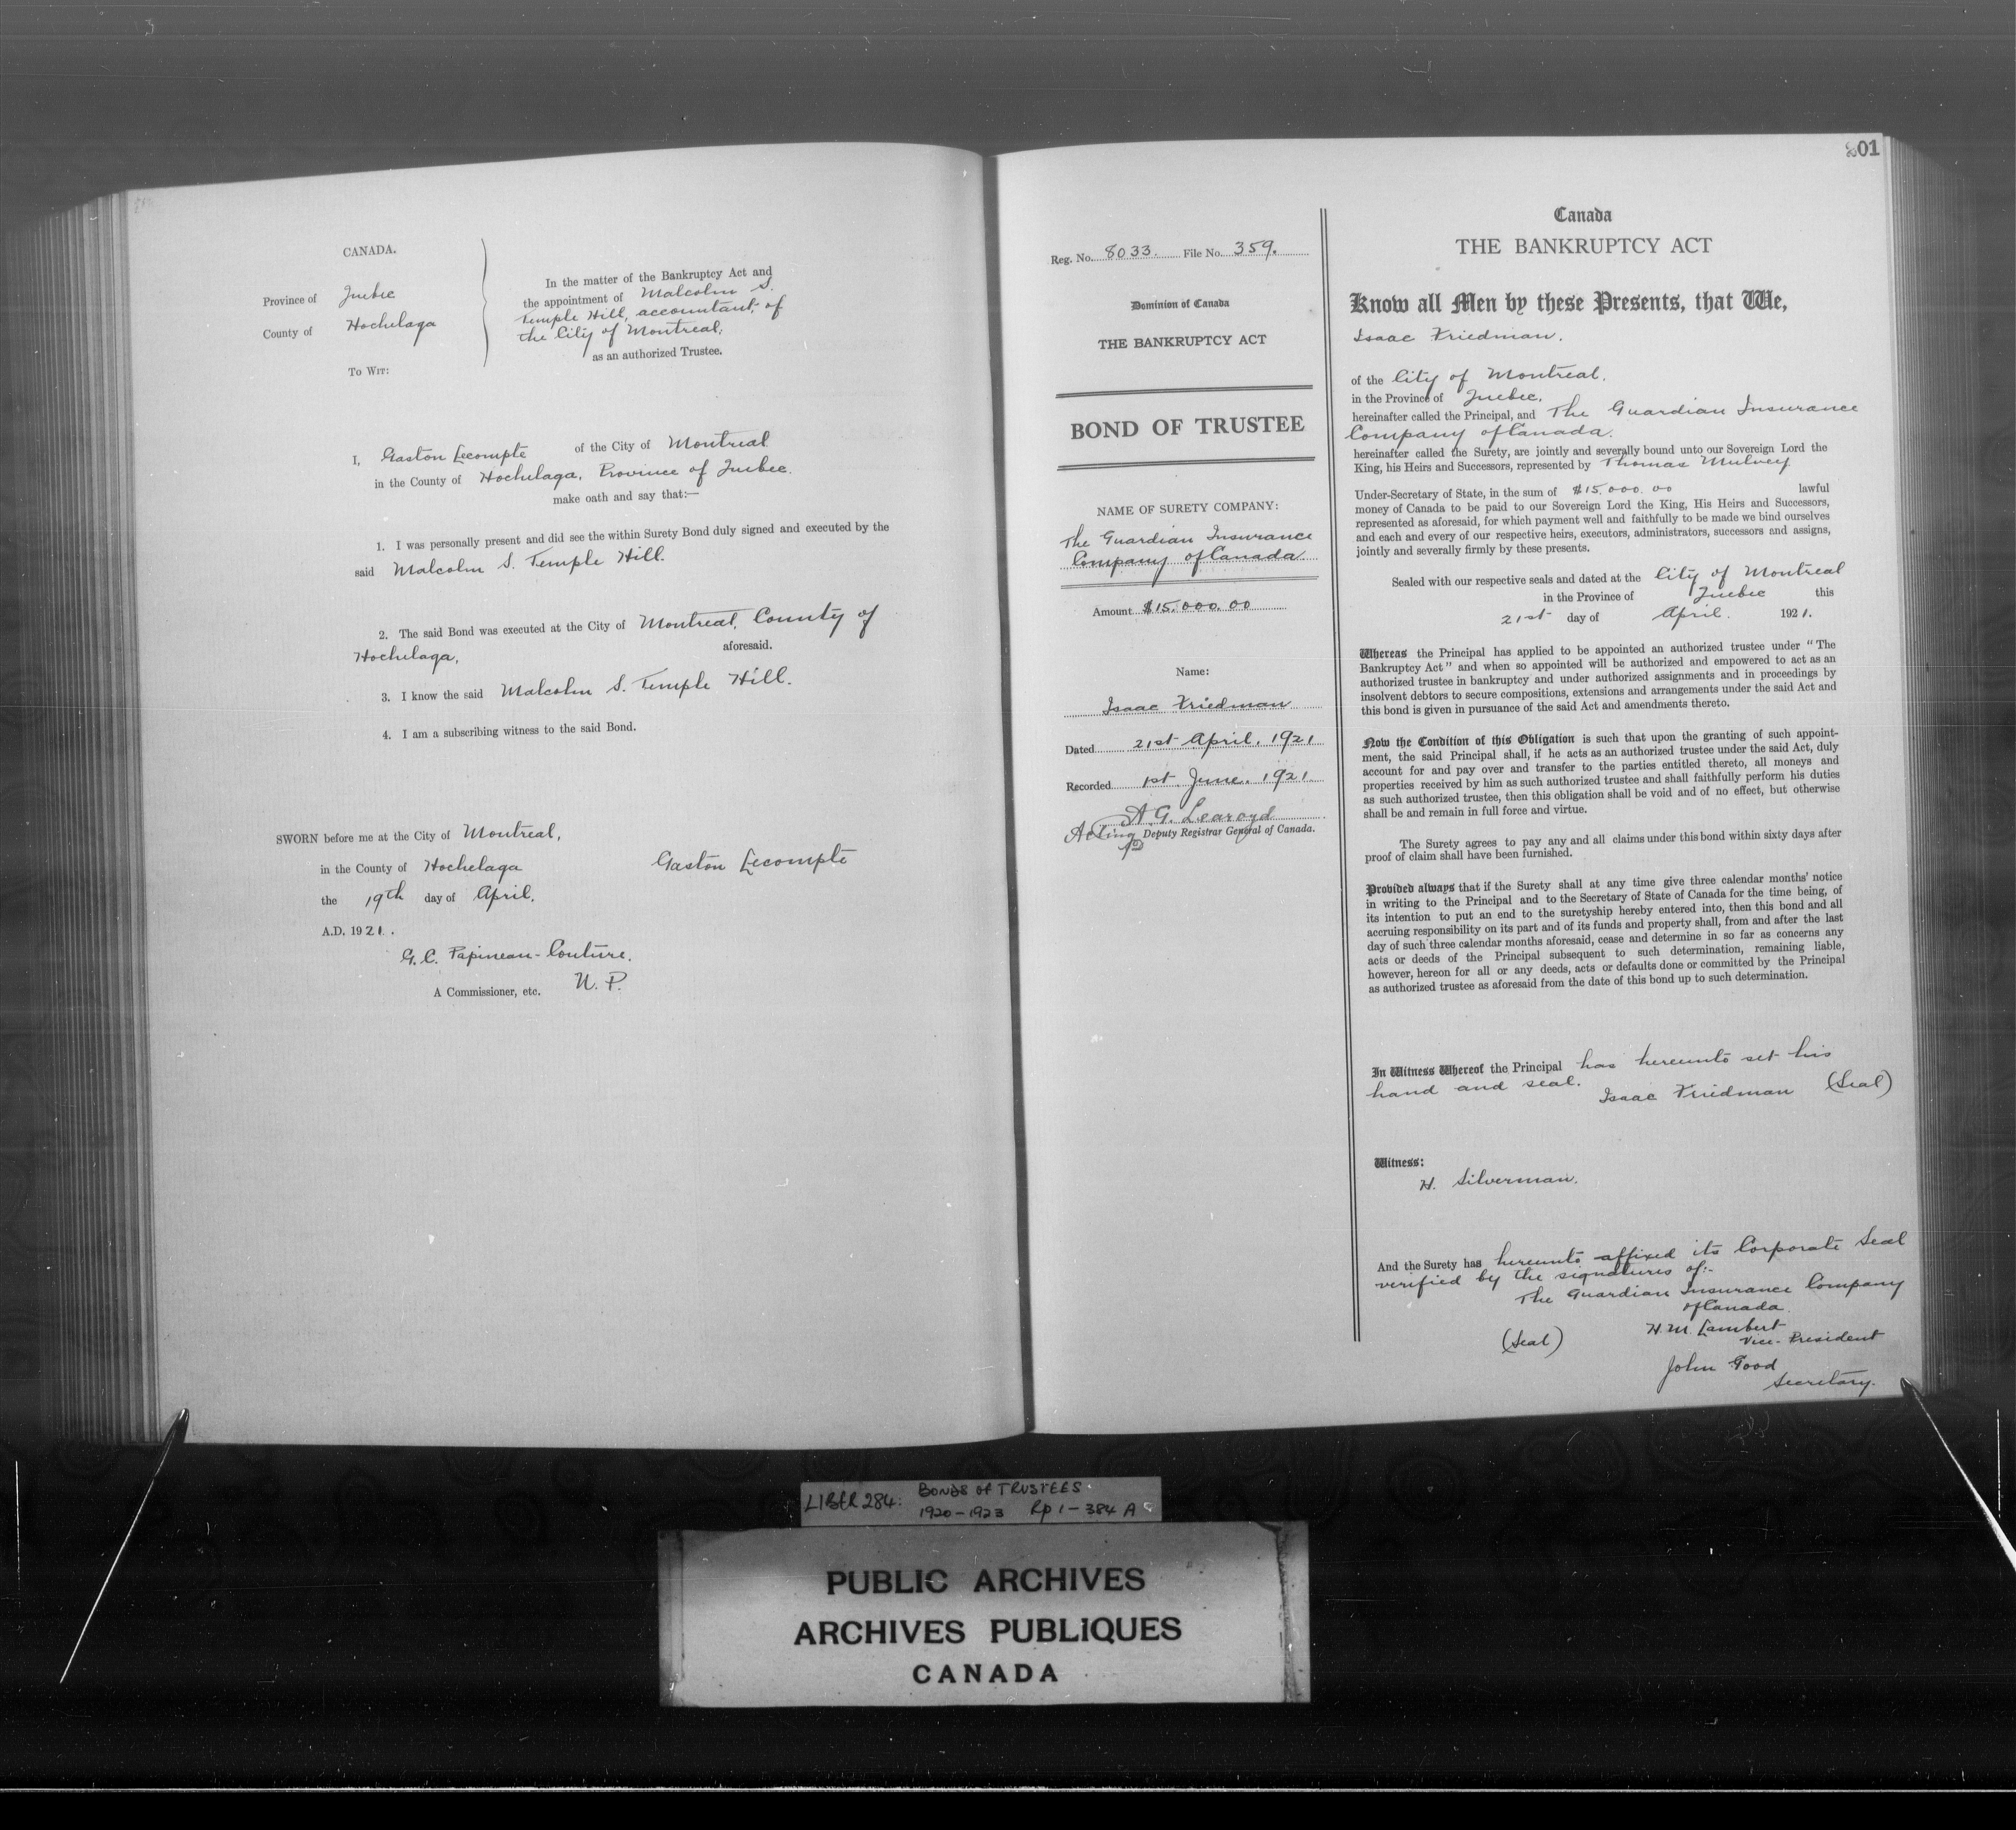 CANADA.
Province of Quebec
County of Hochelaga
To Wit:
In the matter of the Bankruptcy Act and
the appointment of Malcolm S.
Temple Hill, accountant, of
the City of Montreal,
as an authorized Trustee.
I, Gaston Lecompte of the City of Montreal
in the County of Hochelaga, Province of Quebec.
make oath and say that:—
1. I was personally present and did see the within Surety Bond duly signed and executed by the
said Malcolm S. Temple Hill.
2. The said Bond was executed at the City of Montreal, County of
Hochelaga, aforesaid.
3. I know the said Malcolm S. Temple Hill.
4. I am a subscribing witness to the said Bond.
SWORN before me at the City of Montreal,
in the County of Hochelaga
the 19th day of April.
A.D. 1921.
Gaston Lecompte
G. C. Papineau-Couture.
A Commissioner, etc. N. P.
201
Reg. No. 8033. File No. 359.
Dominion of Canada
THE BANKRUPTCY ACT
BOND OF TRUSTEE
NAME OF SURETY COMPANY:
The Guardian Insurance
Company of Canada
Amount $15.000.00
Name:
Isaac Friedman
Dated 21st April. 1921
Recorded 1st June. 1921
A G. Learoyd
Acting Deputy Registrar General of Canada.
Canada
THE BANKRUPTCY ACT
Know all Men by these Presents, that We,
Isaac Friedman.
of the City of Montreal.
in the Province of Quebec.
hereinafter called the Principal, and The Guardian Insurance
Company of Canada.
hereinafter called the Surety, are jointly and severally bound unto our Sovereign Lord the
King, his Heirs and Successors, represented by Thomas Mulvey
Under-Secretary of State, in the sum of $15.000.00 lawful
money of Canada to be paid to our Sovereign Lord the King, His Heirs and Successors,
represented as aforesaid, for which payment well and faithfully to be made we bind ourselves
and each and every of our respective heirs, executors, administrators, successors and assigns,
jointly and severally firmly by these presents.
Sealed with our respective seals and dated at the City of Montreal
in the Province of Quebec this
21st day of April. 1921.
Whereas the Principal has applied to be appointed an authorized trustee under "The
Bankruptcy Act" and when so appointed will be authorized and empowered to act as an
authorized trustee in bankruptcy and under authorized assignments and in proceedings by
insolvent debtors to secure compositions, extensions and arrangements under the said Act and
this bond is given in pursuance of the said Act and amendments thereto.
Now the Condition of this Obligation is such that upon the granting of such appoint-
ment, the said Principal shall, if he acts as an authorized trustee under the said Act, duly
account for and pay over and transfer to the parties entitled thereto, all moneys and
properties received by him as such authorized trustee and shall faithfully perform his duties
as such authorized trustee, then this obligation shall be void and of no effect, but otherwise
shall be and remain in full force and virtue.
The Surety agrees to pay any and all claims under this bond within sixty days after
proof of claim shall have been furnished.
Provided always that if the Surety shall at any time give three calendar months' notice
in writing to the Principal and to the Secretary of State of Canada for the time being, of
its intention to put an end to the suretyship hereby entered into, then this bond and all
accruing responsibility on its part and of its funds and property shall, from and after the last
day of such three calendar months aforesaid, cease and determine in so far as concerns any
acts or deeds of the Principal subsequent to such determination, remaining liable,
however, hereon for all or any deeds, acts or defaults done or committed by the Principal
as authorized trustee as aforesaid from the date of this bond up to such determination.
In Witness Whereof the Principal has hereunto set his
hand and seal.
Isaac Friedman (Seal)
Witness:
H. Silverman.
And the Surety has hereunto affixed its Corporate Seal
verified by the signatures of:-
The Guardian Insurance Company
of Canada.
(Seal) H. M. Lambert
Vice-President
John Good
Secretary.
LIBER 284: BONDS OF TRUSTEES
1920-1923 Rp 1-384 A
PUBLIC ARCHIVES
ARCHIVES PUBLIQUES
CANADA